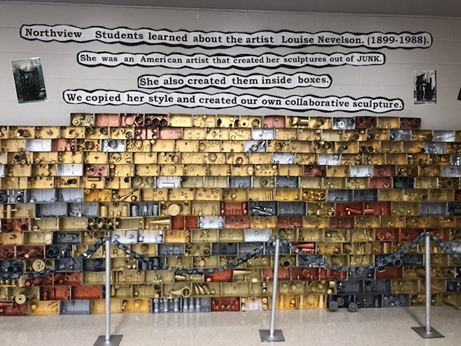 Northview Students learned about the artist Louise Nevelson. (1899-1988).
She was an American artist that created her sculptures out of JUNK.
She also created them inside boxes.
We copied her style and created our own collaborative sculpture.